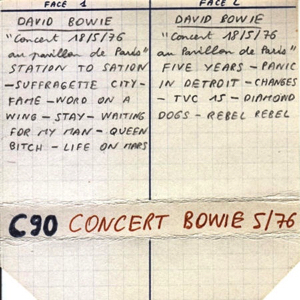 FACE 1
DAVID BOWIE
"Concert 18/5/76
au pavillon de Paris"
STATION TO SATION
-SUFFRAGETTE CITY-
FAME - WORD ON A
WING - STAY - WAITING
FOR MY MAN - QUEEN
BITCH - LIFE ON MARS
FACE 2
DAVID BOWIE
"Concert 18/5/76
au Pavillon de Paris"
FIVE YEARS - PANIC
IN DETROIT - CHANGES
- TVC 15 - DIAMOND
DOGS - REBEL REBEL
C90 CONCERT BOWIE 5/76